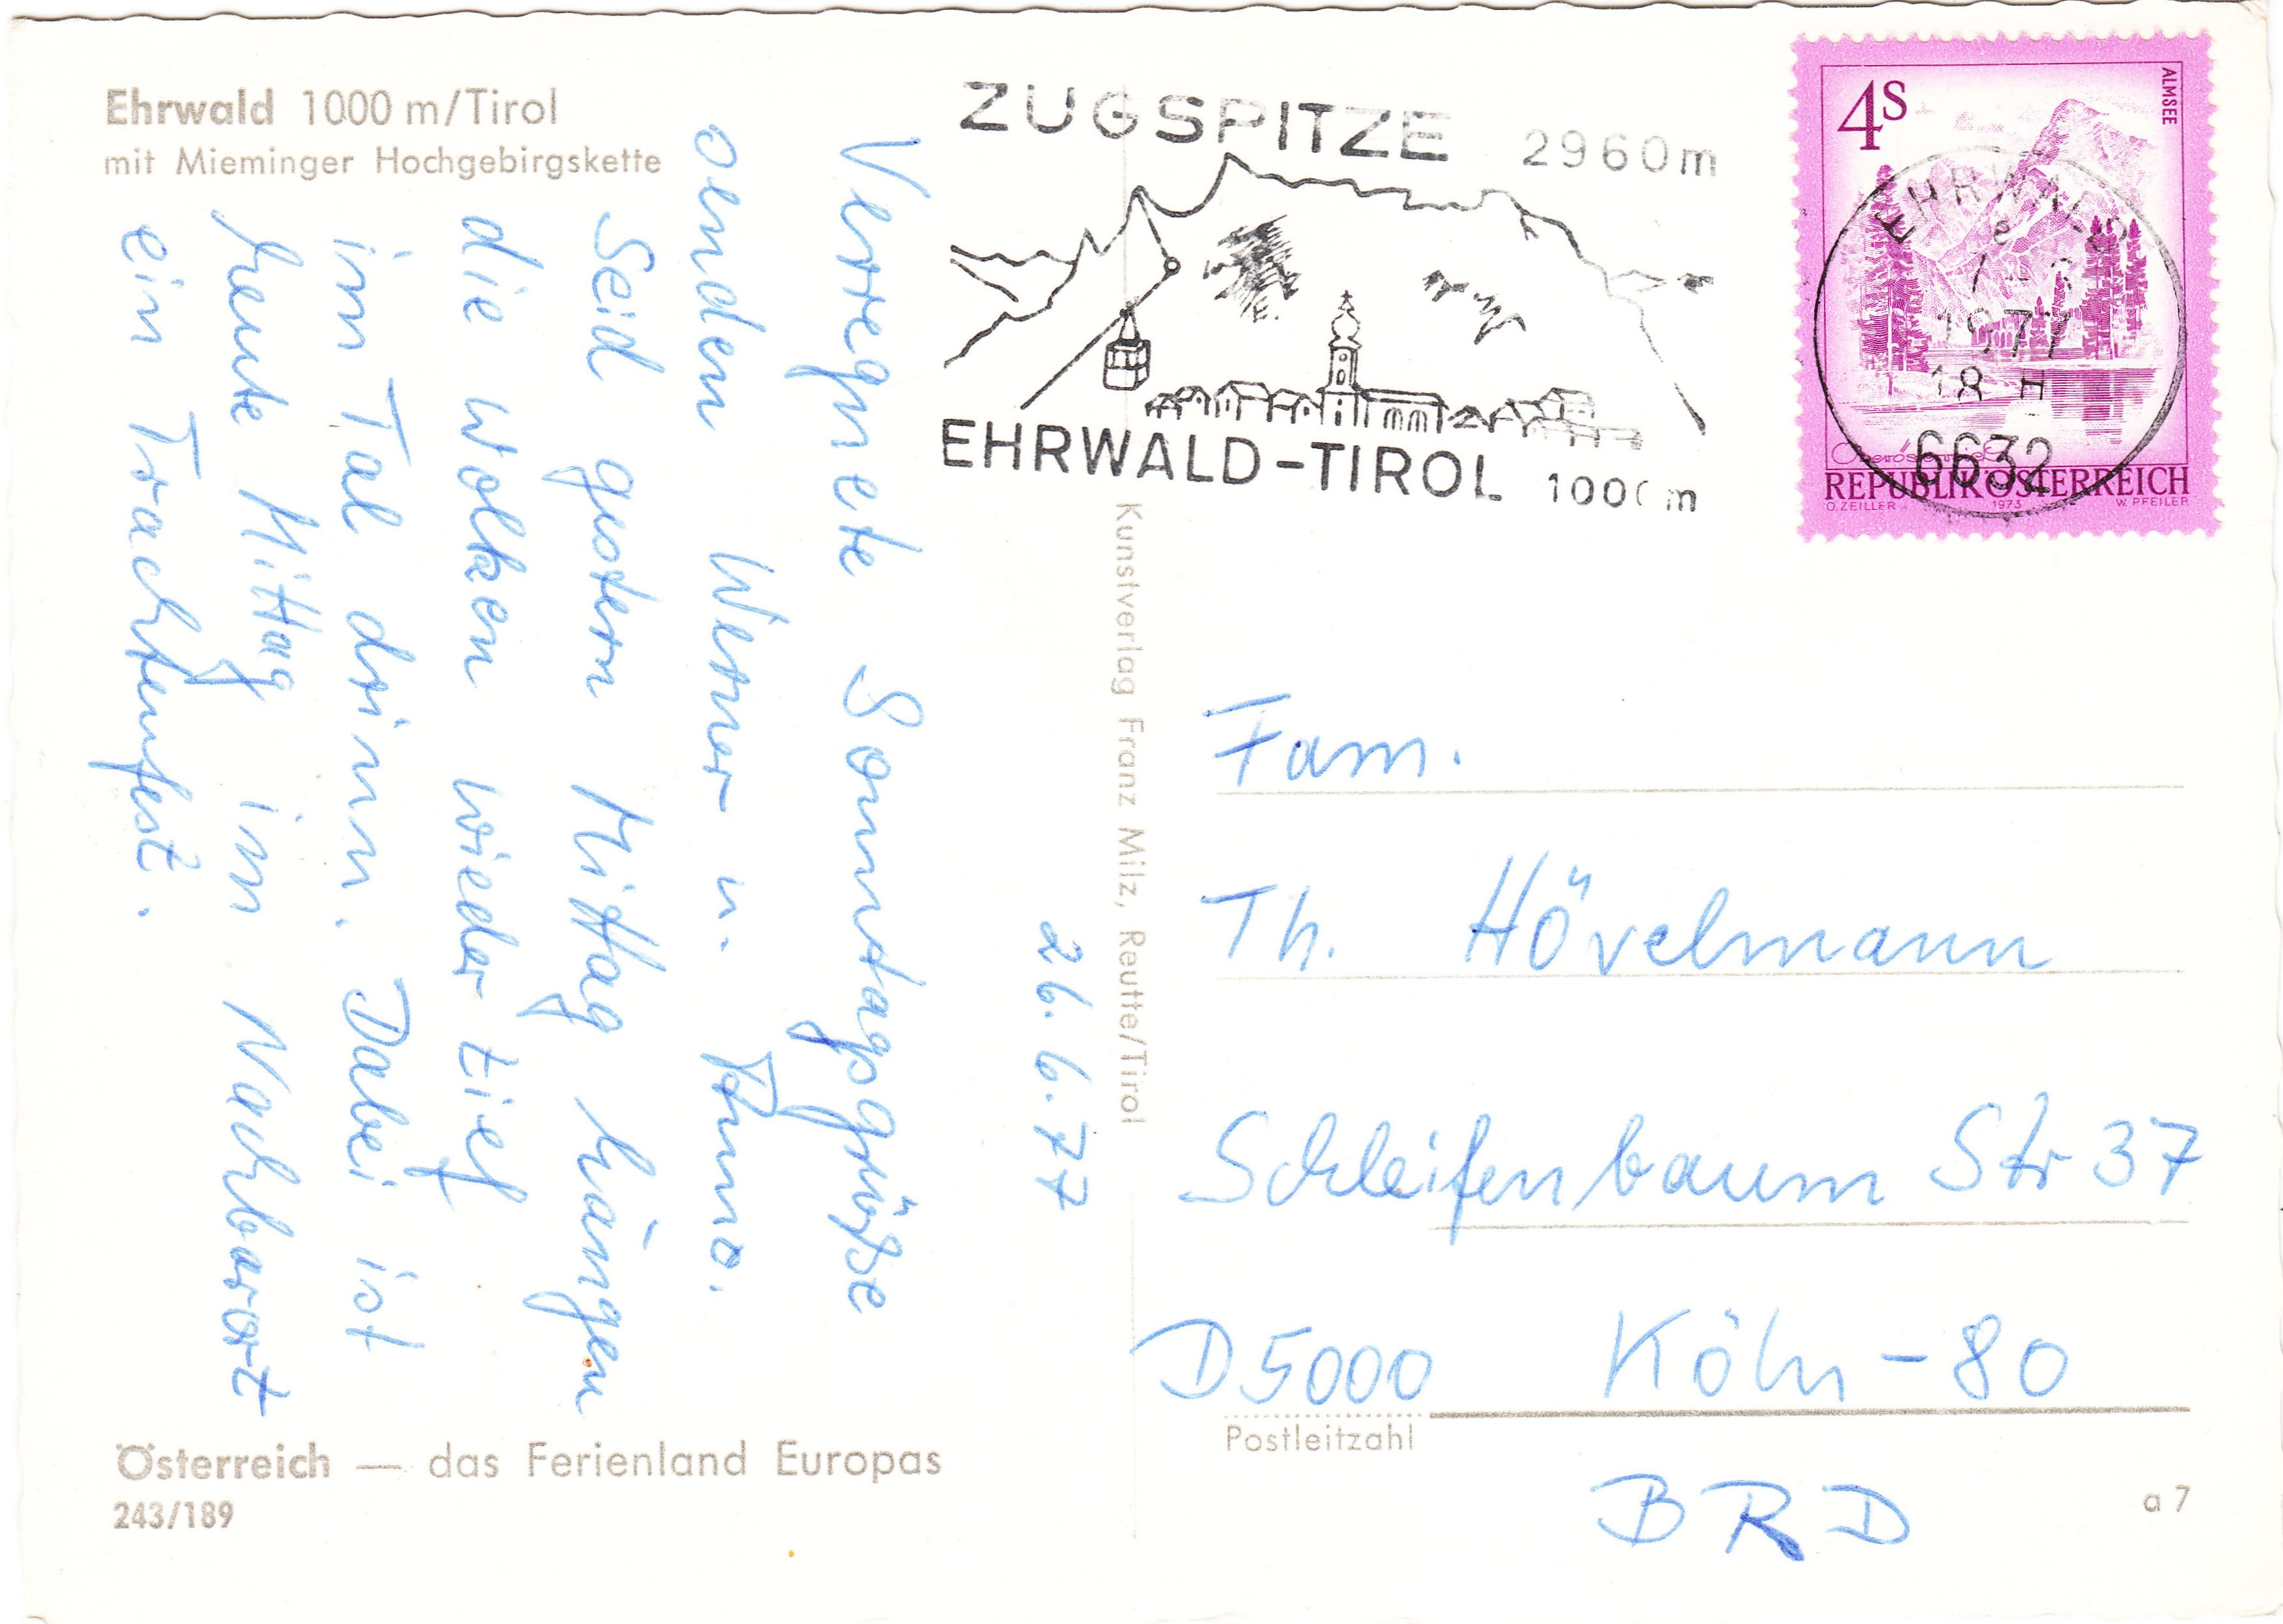 Ehrwald 1000 m/Tirol
mit Mieminger Hochgebirgskette
26.6.77
Verregnete Sonntagsgrüße
senden Werner u. Änne.
Seid gestern Mittag hängen
die Wolken wieder tief
im Tal drinn. Dabei ist
heute Mittag im Nachbarort
ein Trachtenfest.
Österreich — das Ferienland Europas
243/189
Kunstverlag Franz Milz, Reutte/Tirol
ZUGSPITZE 2960m
EHRWALD-TIROL 1000 m
4S
ALMSEE
Oberösterreich
REPUBLIK ÖSTERREICH
O. ZEILLER 1973 W. PFEILER
EHRWALD
e
1977
18 H
6632
Fam.
Th. Hövelmann
Schleifenbaum Str 37
D 5000 Köln - 80
Postleitzahl
BRD
a 7